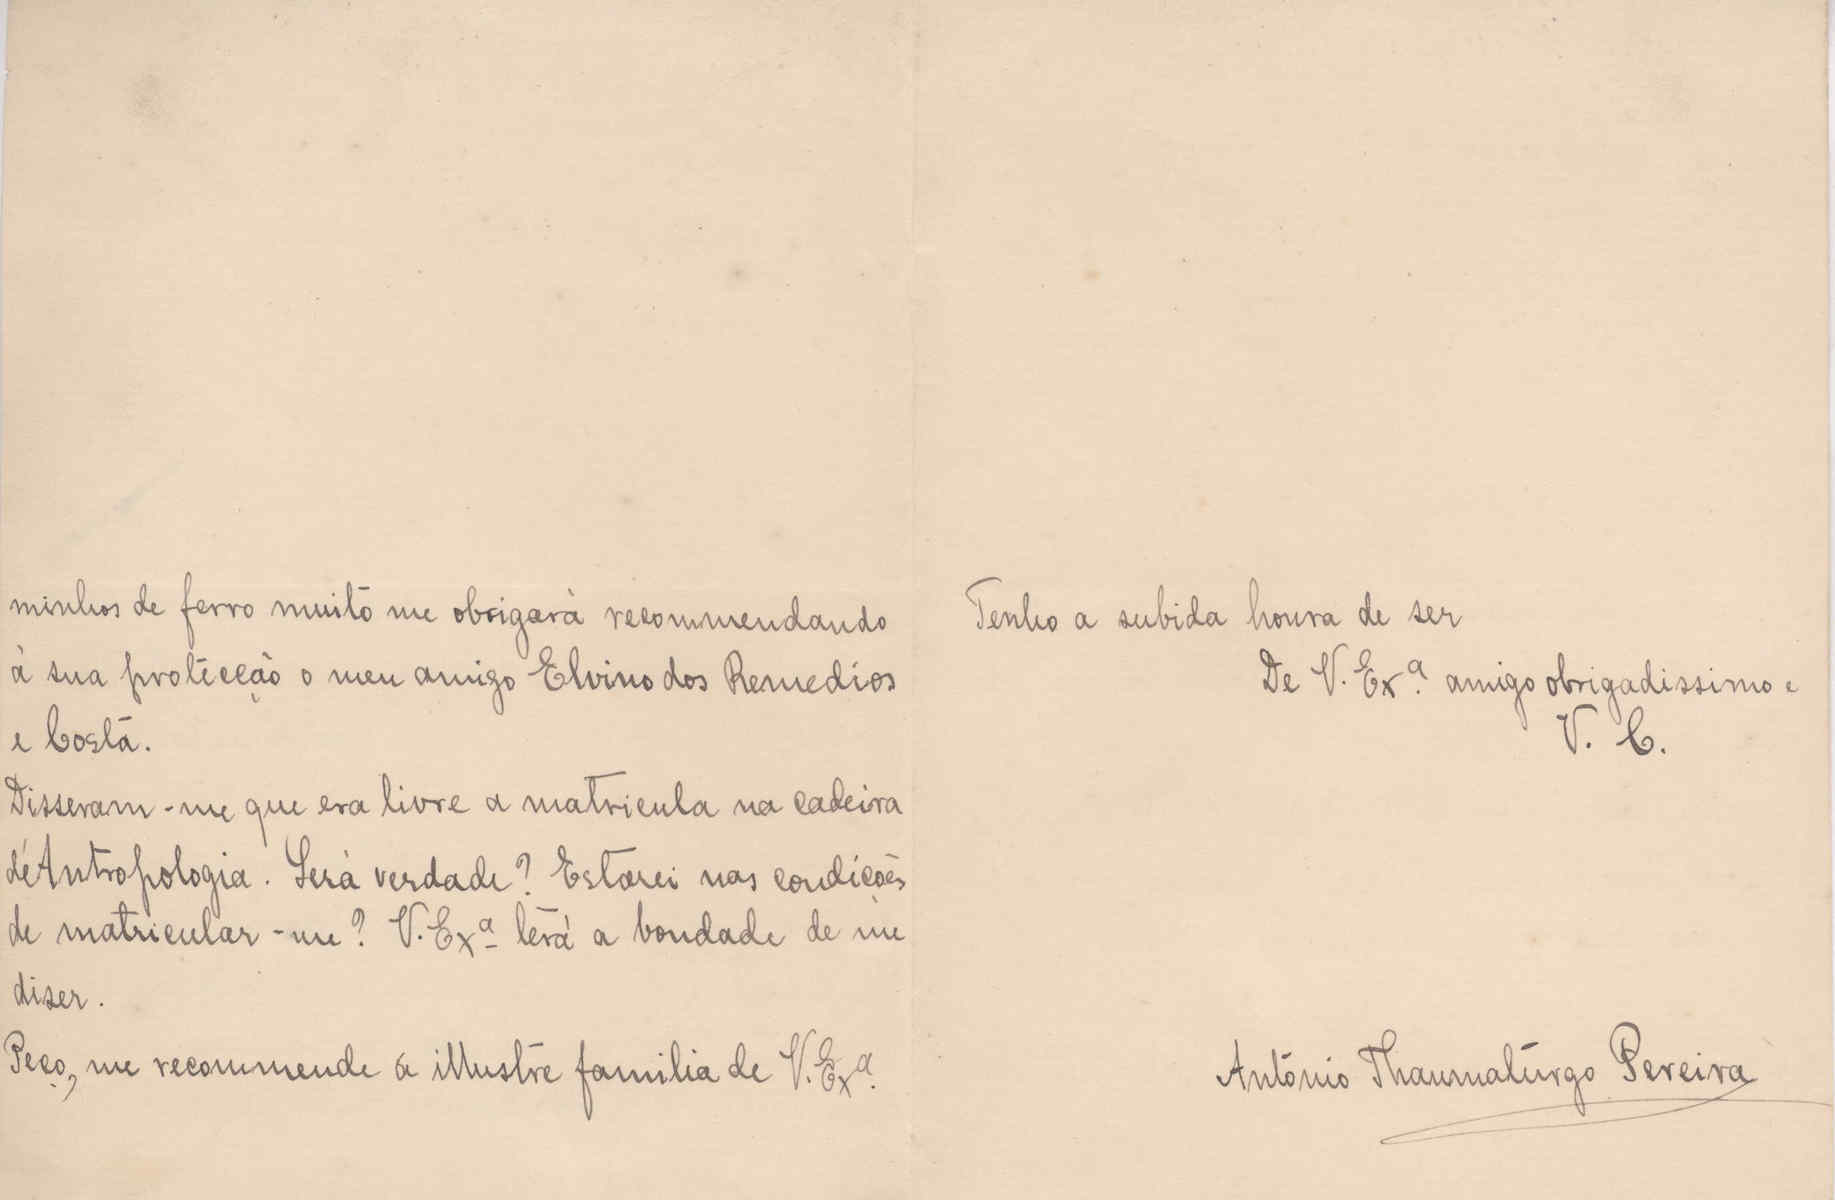 minhos de ferro muito me obrigará recommendando
á sua protecção o meu amigo Elvino dos Remedios
e Costa.
Disseram-me que era livre a matricula na cadeira
d'Antropologia. Será verdade? Estarei nas condições
de matricular-me? V. Exª terá a bondade de me
diser.
Peço, me recommende á illustre familia de V. Exª.
Tenho a subida honra de ser
De V. Exª. amigo obrigadissimo e
V. C.
António Thaumaturgo Pereira